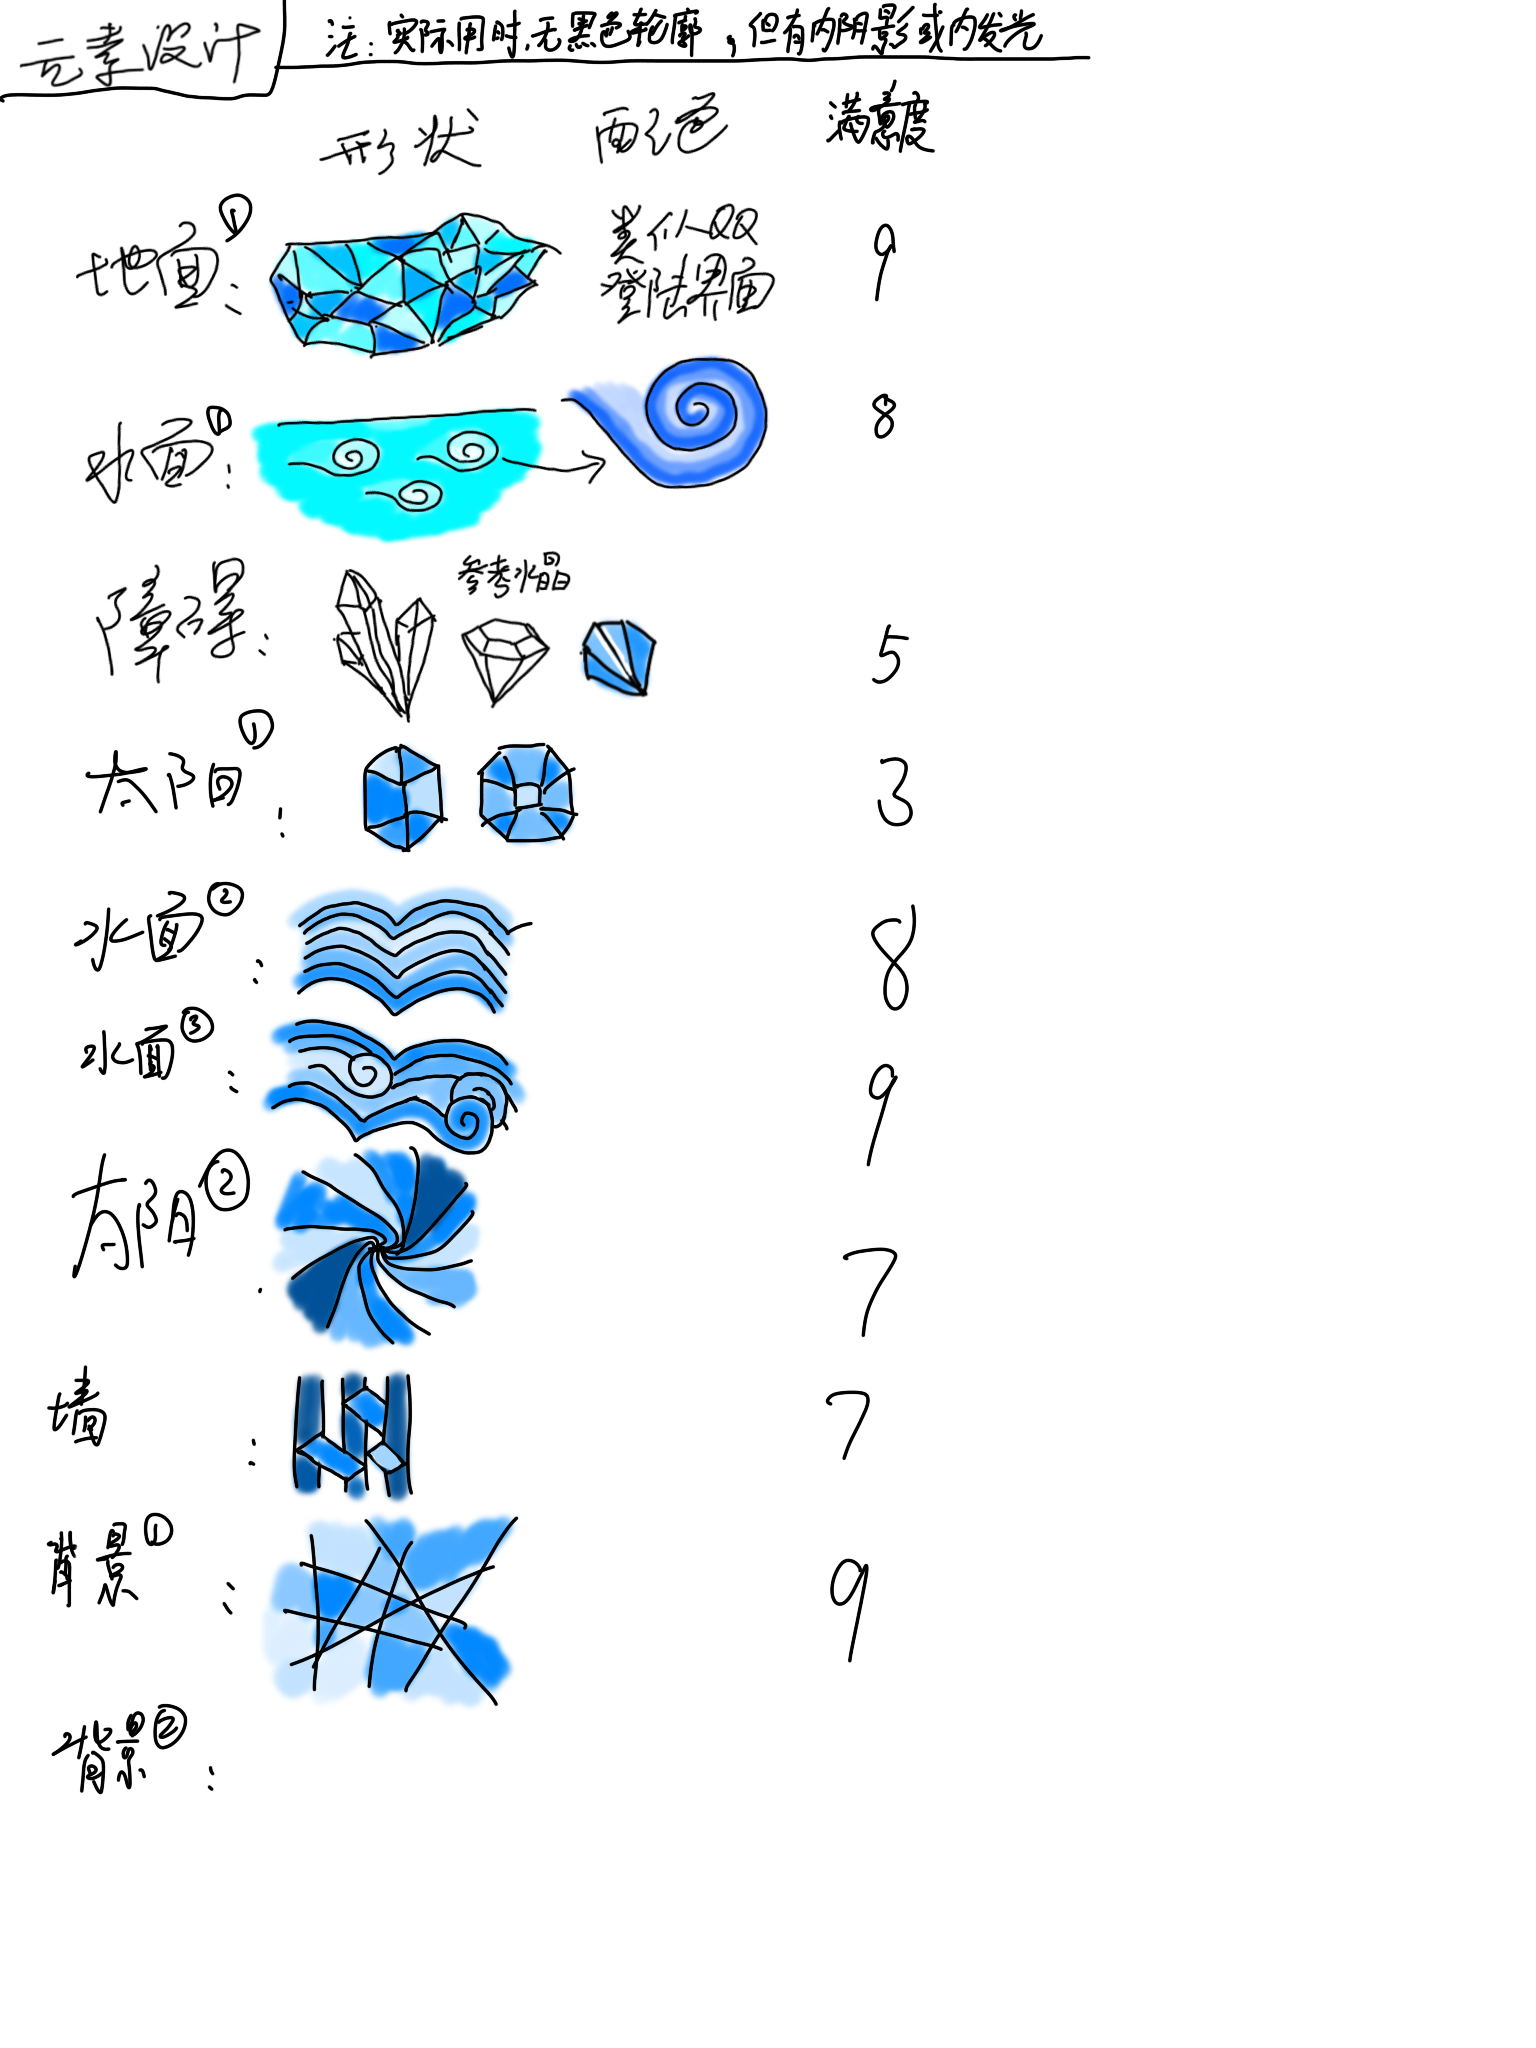 元素设计
注：实际用时,无黑色轮廓，但有内阴影或内发光
形状 配色 满意度
地面①： 类似QQ 登陆界面 9
水面①： 8
障碍： 参考水晶 5
太阳①： 3
水面②： 8
水面③： 9
太阳②： 7
墙： 7
背景①： 9
背景②：